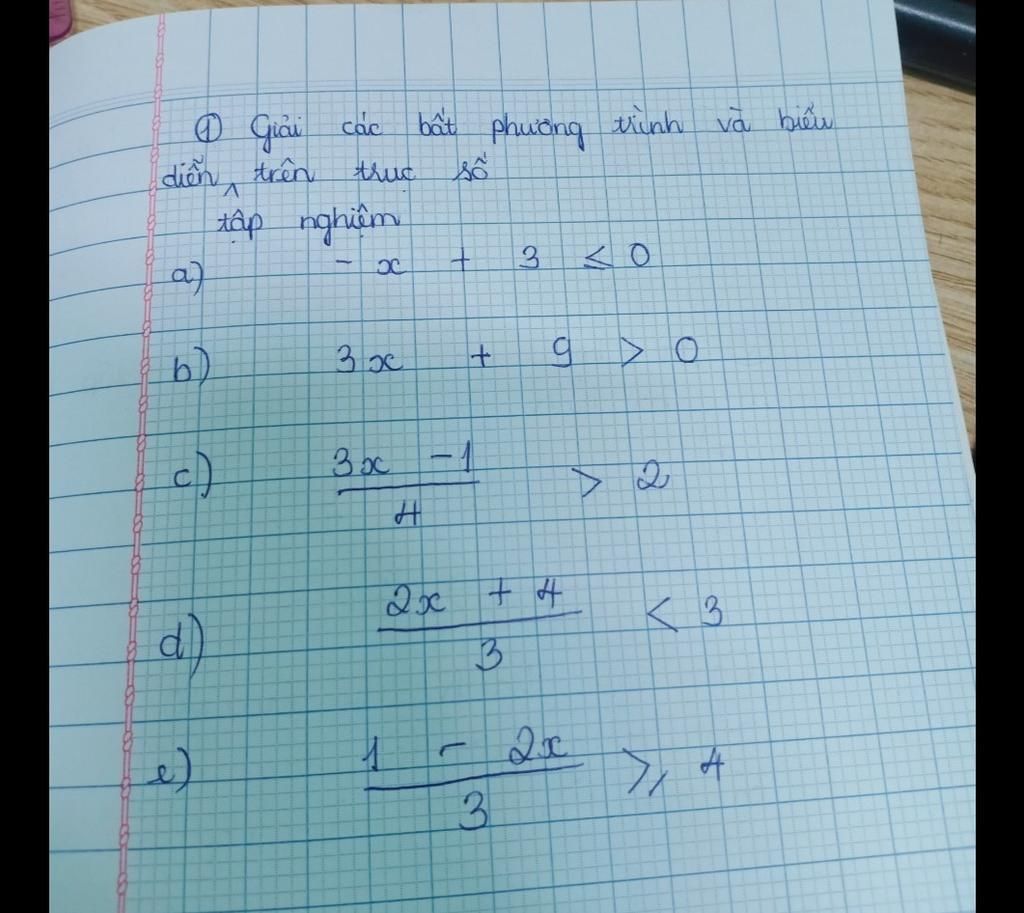 ① Giải các bất phương trình và biểu
diễn ^ trên trục số
tập nghiệm
a) - x + 3 ≤ 0
b) 3x + 9 > 0
c) (3x - 1)/4 > 2
d) (2x + 4)/3 < 3
e) (1 - 2x)/3 ≥ 4